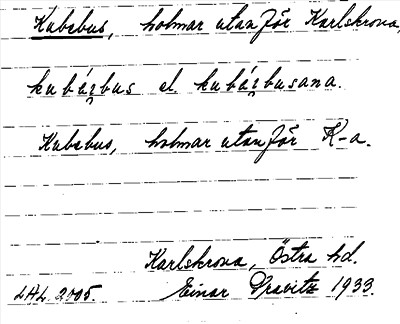 Kubebus, holmar utanför Karlskrona,
kubábus el. kubábusana.
Kubebus, holmar utanför K-a.
Karlskrona, Östra hd.
LHL. 2005. Einar Gravitz 1933.